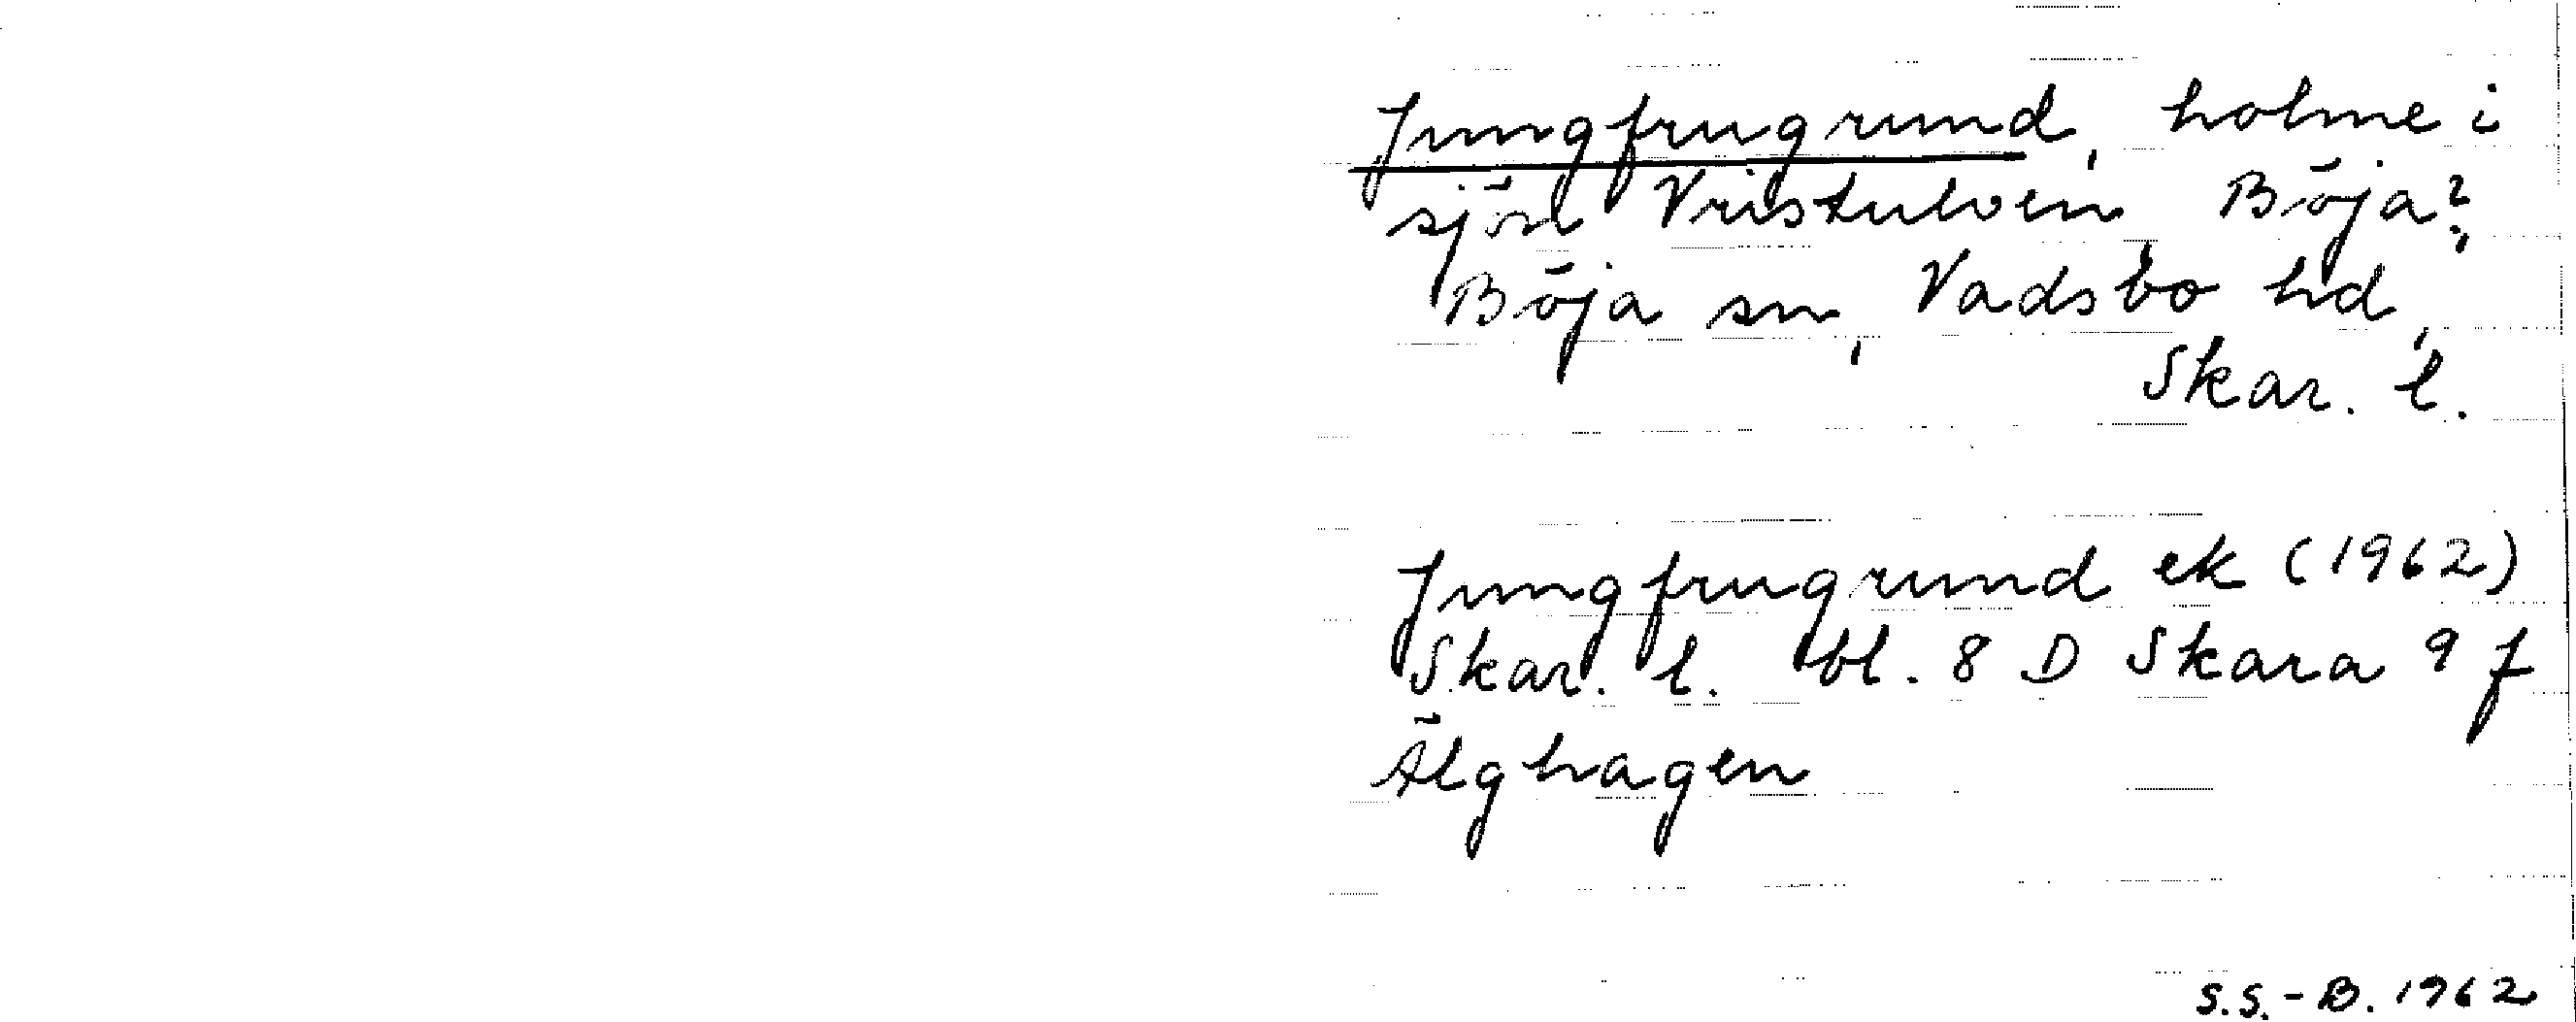 Jungfrugrund, holme i
sjön Vristulven, Böja?,
Böja sn, Vadsbo hd,
Skar. l.
Jungfrugrund ek (1962)
Skar. l. bl. 8 D Skara 9 f
Älghagen
S.S.-B. 1962